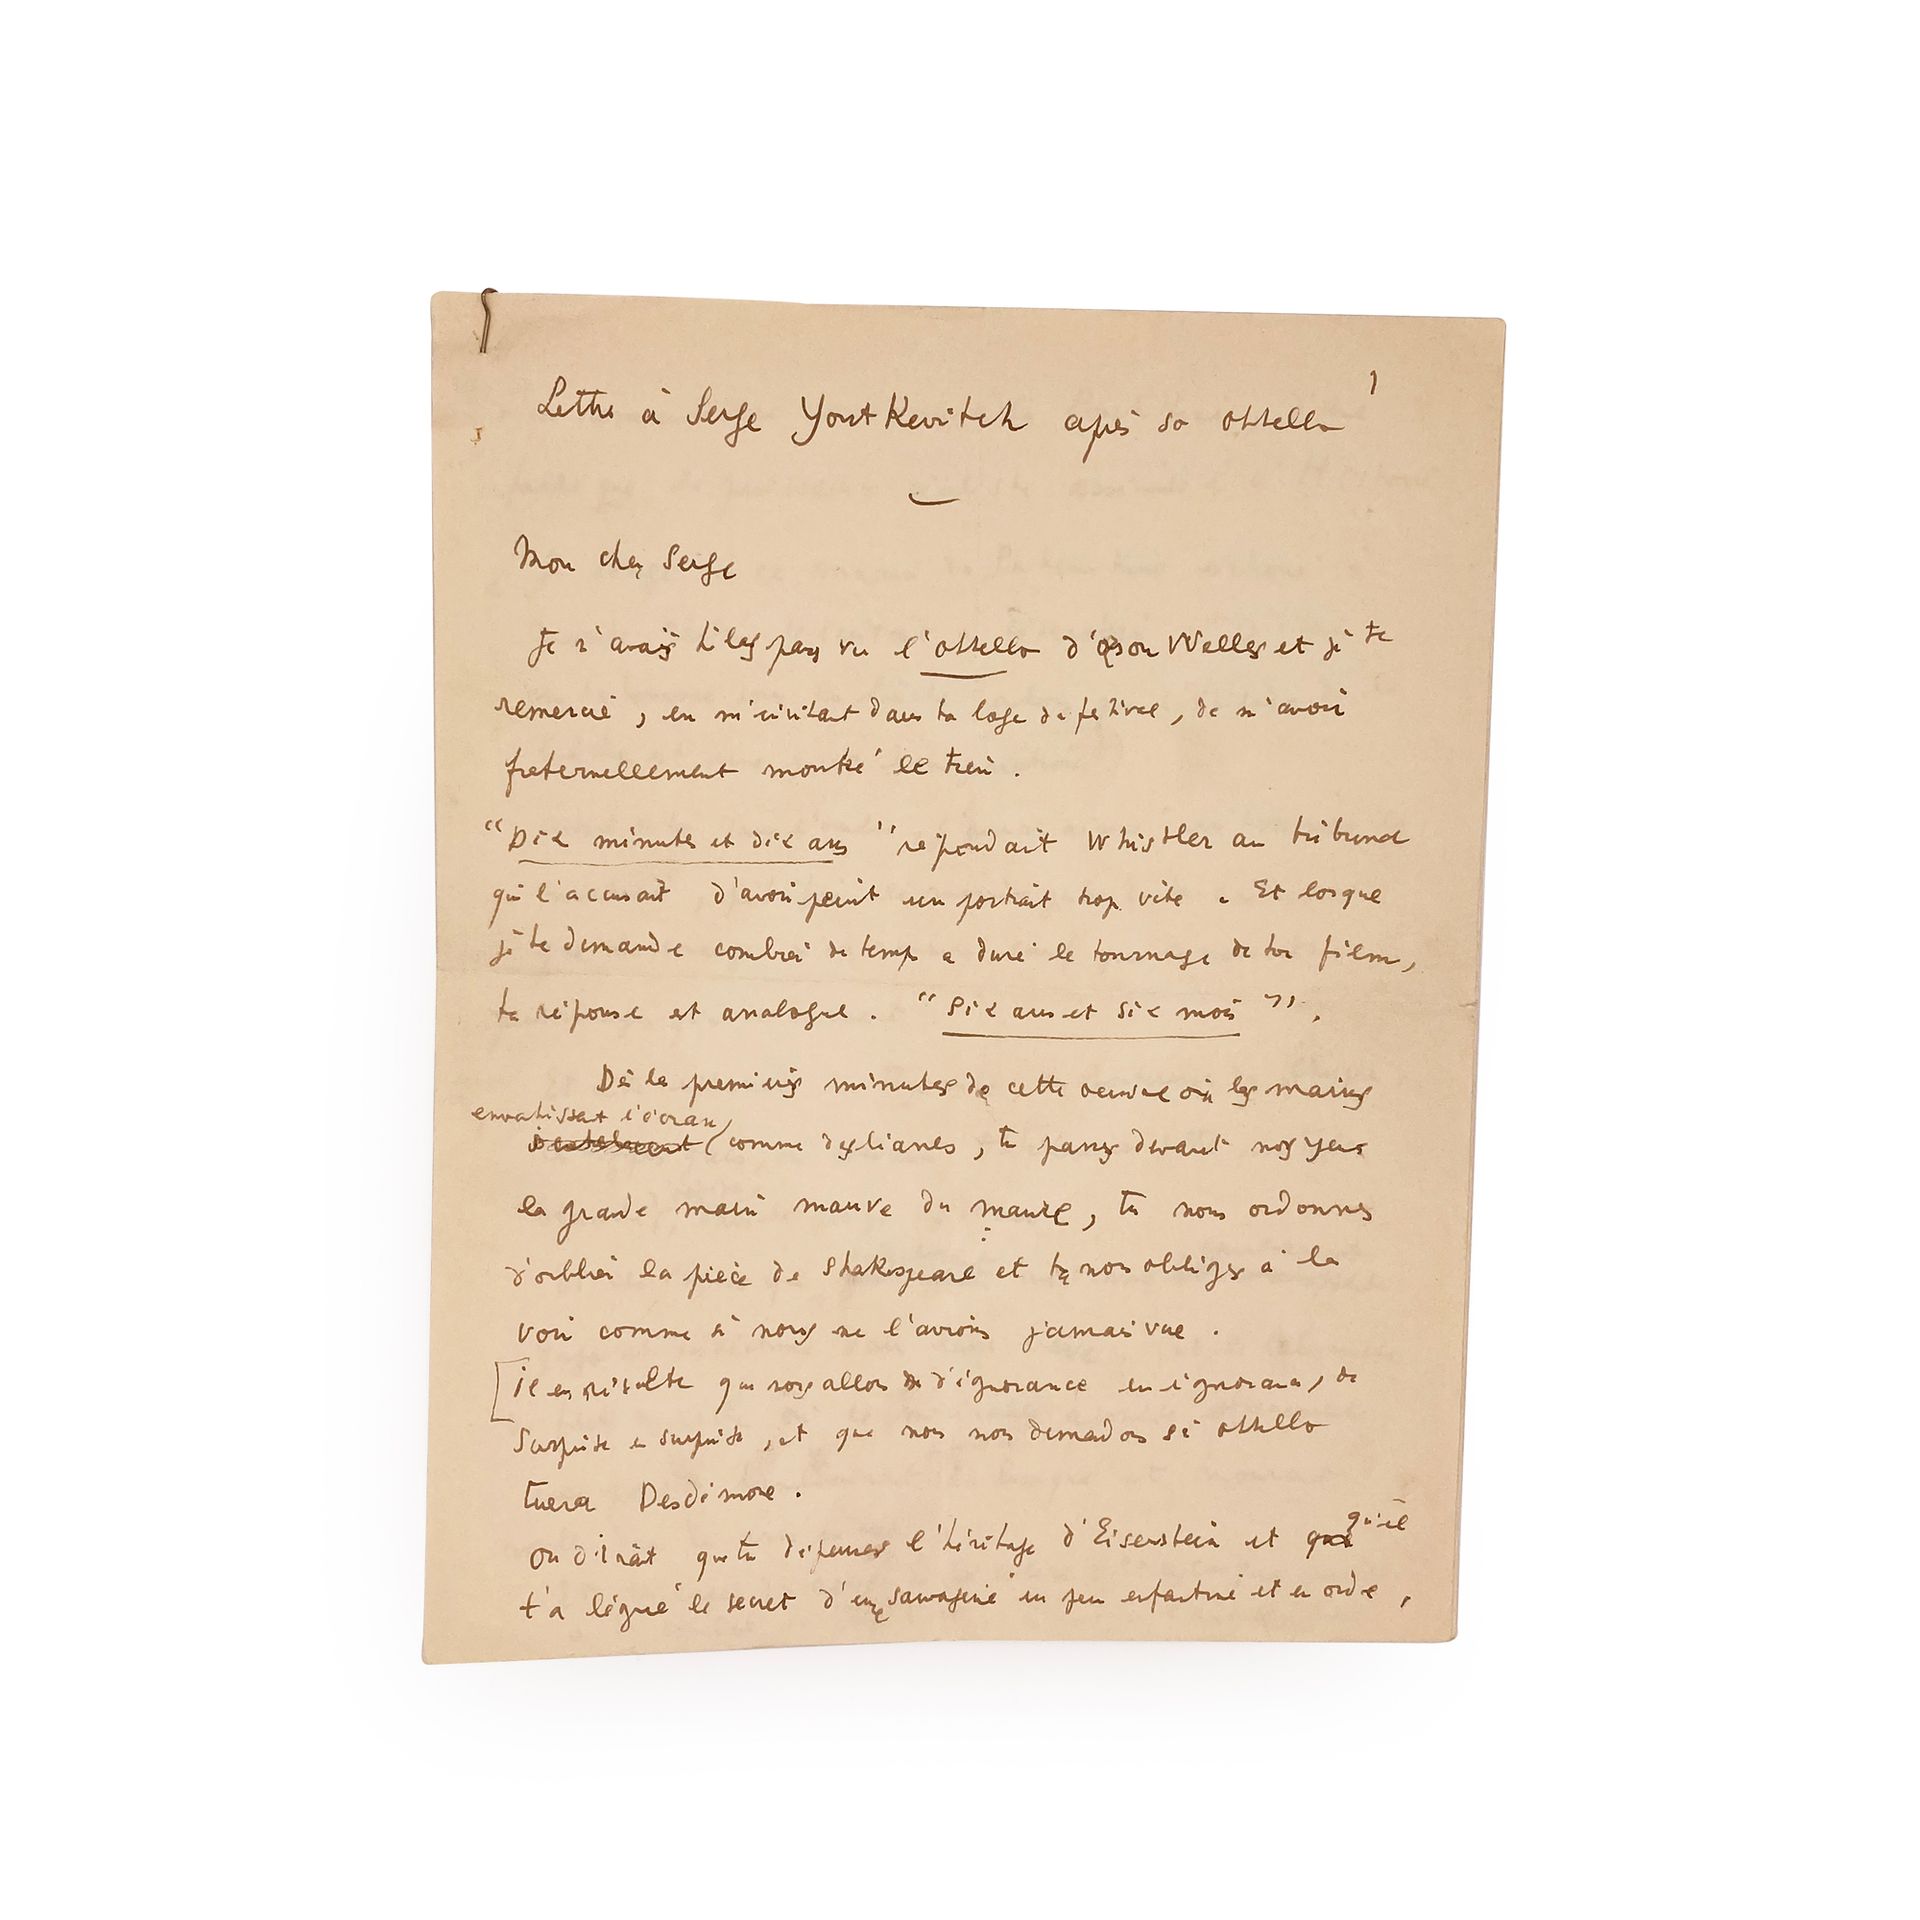 1
Lettre à Serge Youtkevitch après so othello
Mon cher Serge
Je n'avais hélas pas vu l'othello d'Orson Welles et je te
remercie, en m'invitant dans ta loge de festival, de m'avoir
fraternellement montré le tien.
"Dix minutes et dix ans" répondait Whistler au tribunal
qui l'accusait d'avoir peint un portrait trop vite. Et lorsque
je te demande combien de temps a duré le tournage de ton film,
ta réponse est analogue. "Six ans et six mois".
Dès les premières minutes de cette oeuvre où les mains
envahissent l'écran
comme des lianes, tu passes devant nos yeux
la grande main mauve du maure, tu nous ordonnes
d'oublier la pièce de Shakespeare et tu nous obliges à la
voir comme si nous ne l'avions jamais vue.
[il en résulte que nous allons d'ignorance en ignorance, de
surprise en surprise, et que nous nous demandons si othello
tuera Desdémone.
qu'il
On dirait que tu dépenses l'héritage d'Eisenstein et que
t'a légué le secret d'une sauvagerie un peu enfantine et en ordre,